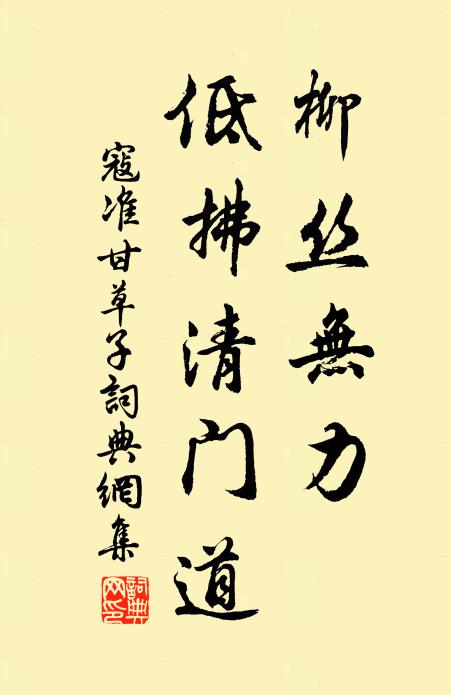 柳丝無力
低拂清门道
寇准甘草子詞典網集
詞典网印